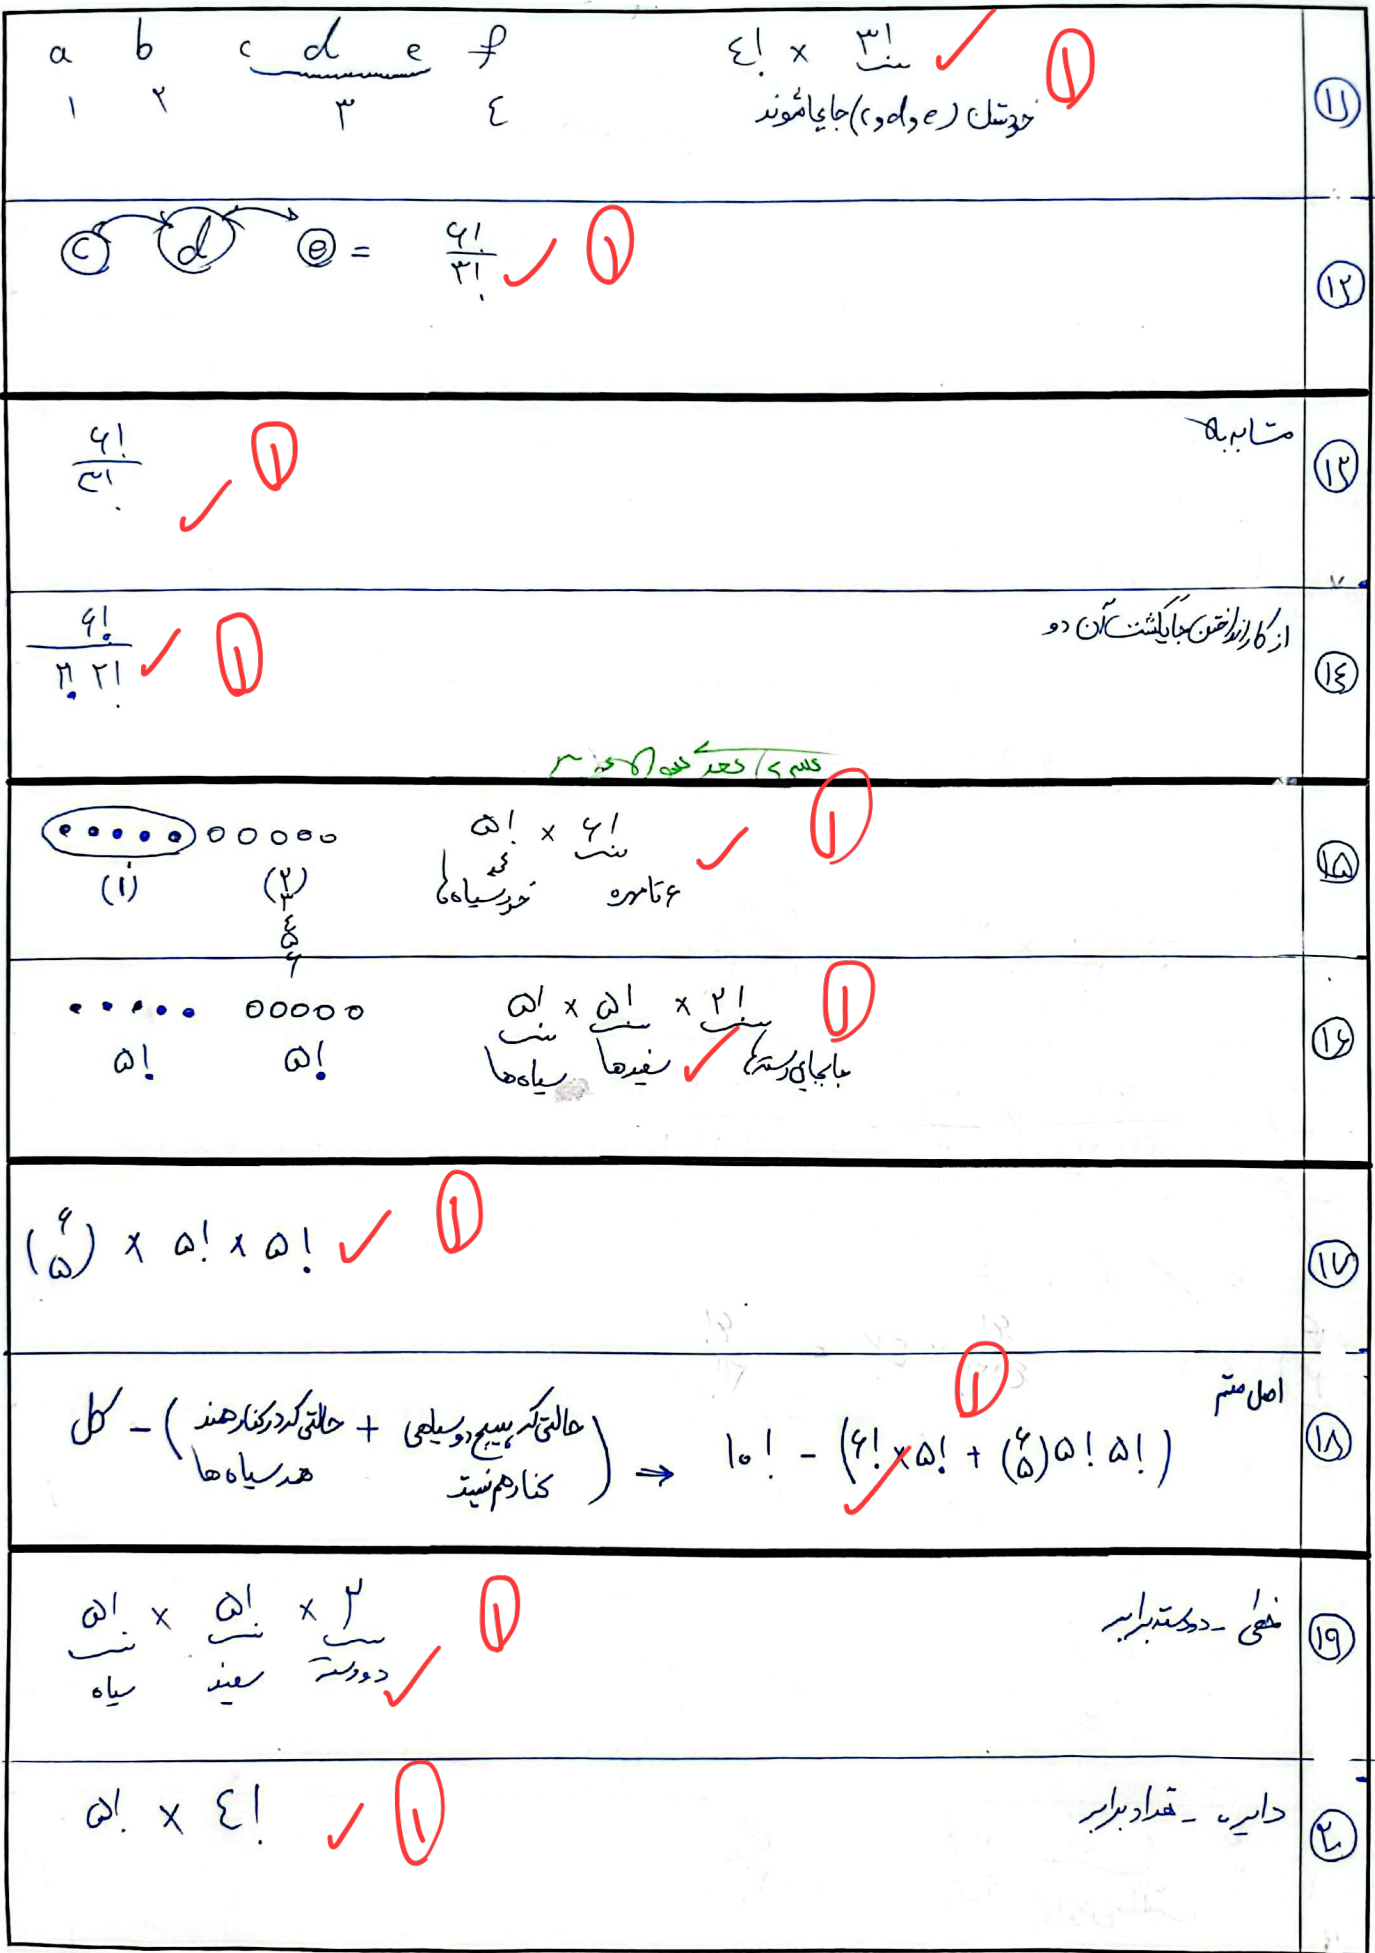 ۱۱
a b c d e f
۱ ۲ ۳ ٤
٤! × ۳! ۱
خودشان (c و d و e) جابجا شوند
۱۲
c d e = ۶!/۳! ۱
۱۳
مشابه بالا
۶!/۳! ۱
۱٤
از کار انداختن جایگشت آن دو
۶!/۲! ۲! ۱
۱۵
(۱) (۲
۳
٤
۵
۶)
۵! × ۶! ۱
خود سیاه‌ها ۶ تا مهره
۱۶
۵! ۵!
۵! × ۵! × ۲! ۱
سیاه‌ها سفیدها جابجایی دسته‌ها
۱۷
(۶ ۵) × ۵! × ۵! ۱
۱۸
اصل متمم
کل - (حالتی که در کنار هم‌اند همه سیاه‌ها + حالتی که هیچ دو سیاهی کنار هم نیستند) ⇒ ۱۰! - (۶! × ۵! + (۶ ۵) ۵! ۵!) ۱
۱۹
خطی - دو دسته برابر
۵! × ۵! × ۲ ۱
سیاه سفید دو دسته
۲۰
دایره - تعداد برابر
۵! × ٤! ۱